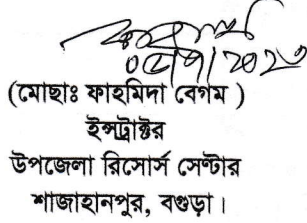 (মোছাঃ ফাহমিদা বেগম )
ইন্সট্রাক্টর
উপজেলা রিসোর্স সেন্টার
শাজাহানপুর, বগুড়া।